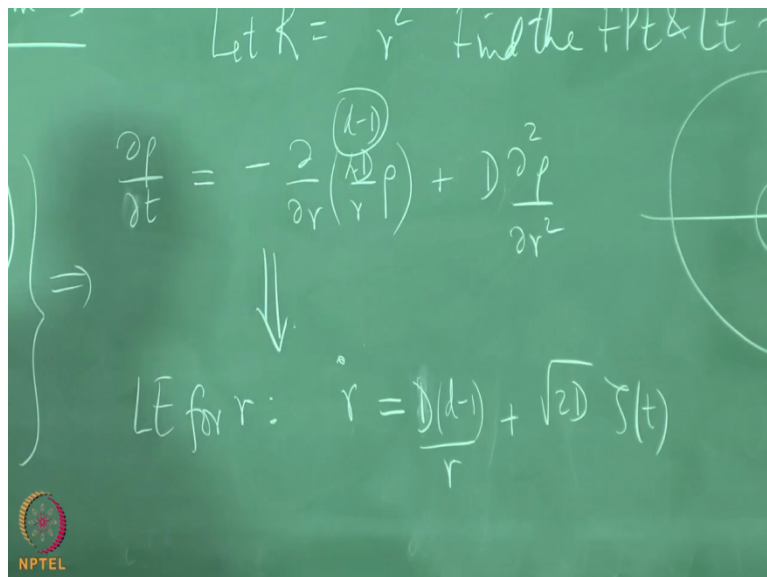 Let R = r² Find the FPE & LE
(d-1)
∂ρ/∂t = - ∂/∂r (D/r ρ) + D ∂²ρ/∂r²
⇒
⇓
LE for r : ṙ = D(d-1)/r + √2D ζ(t)
NPTEL